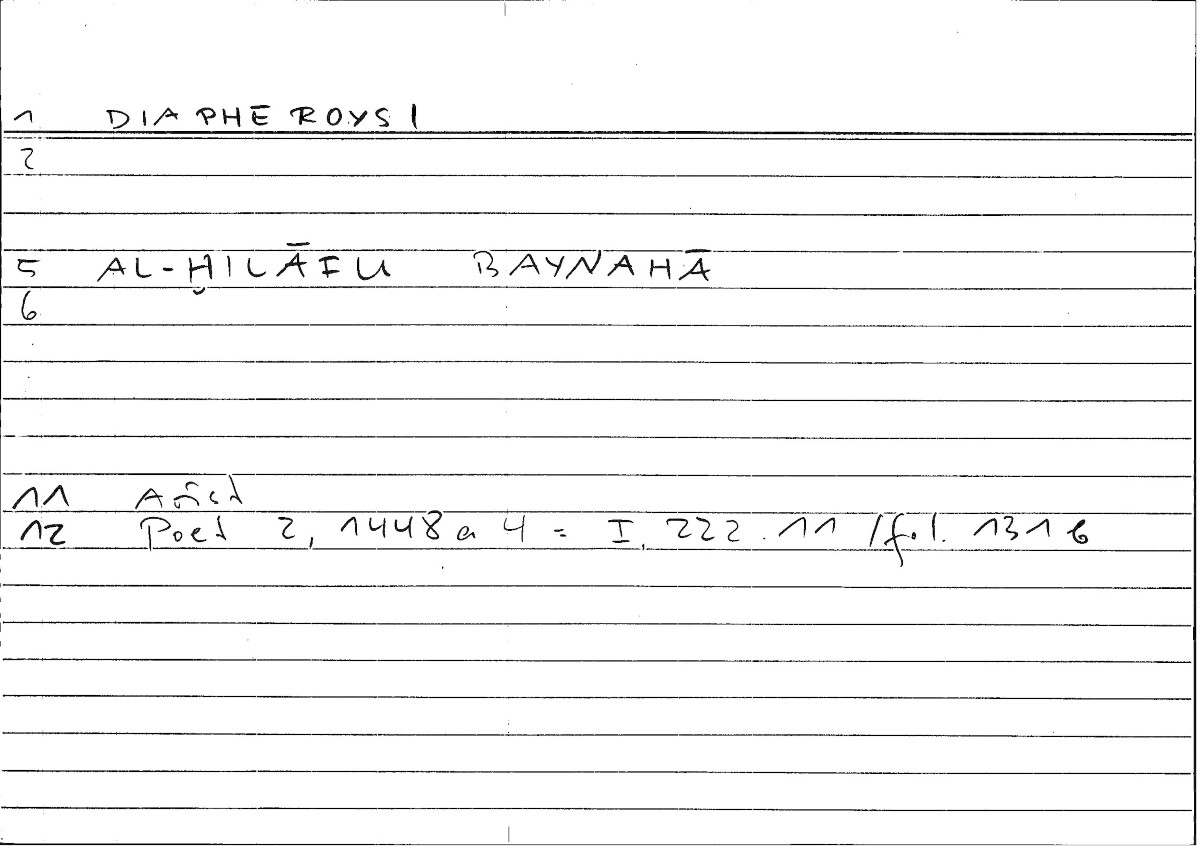 1 DIAPHĒROYSI
2
5 AL-ḪILĀFU BAYNAHĀ
6
11
12 Poet 2, 1448 a 4 = I, 222.11 / fol. 131 b